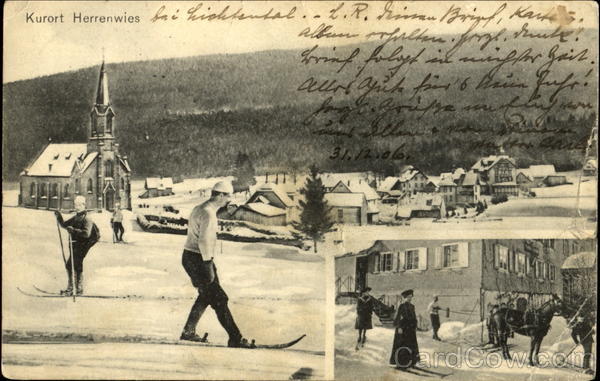 Kurort Herrenwies
bei Lichtental. - L. R. Deinen Brief, Karte u.
Album erhalten. Herzl. Dank!
Brief folgt in nächster Zeit.
Alles Gute für's Neue Jahr!
Herzl. Grüsse von
uns Allen
31.12.06.
CardCow.com